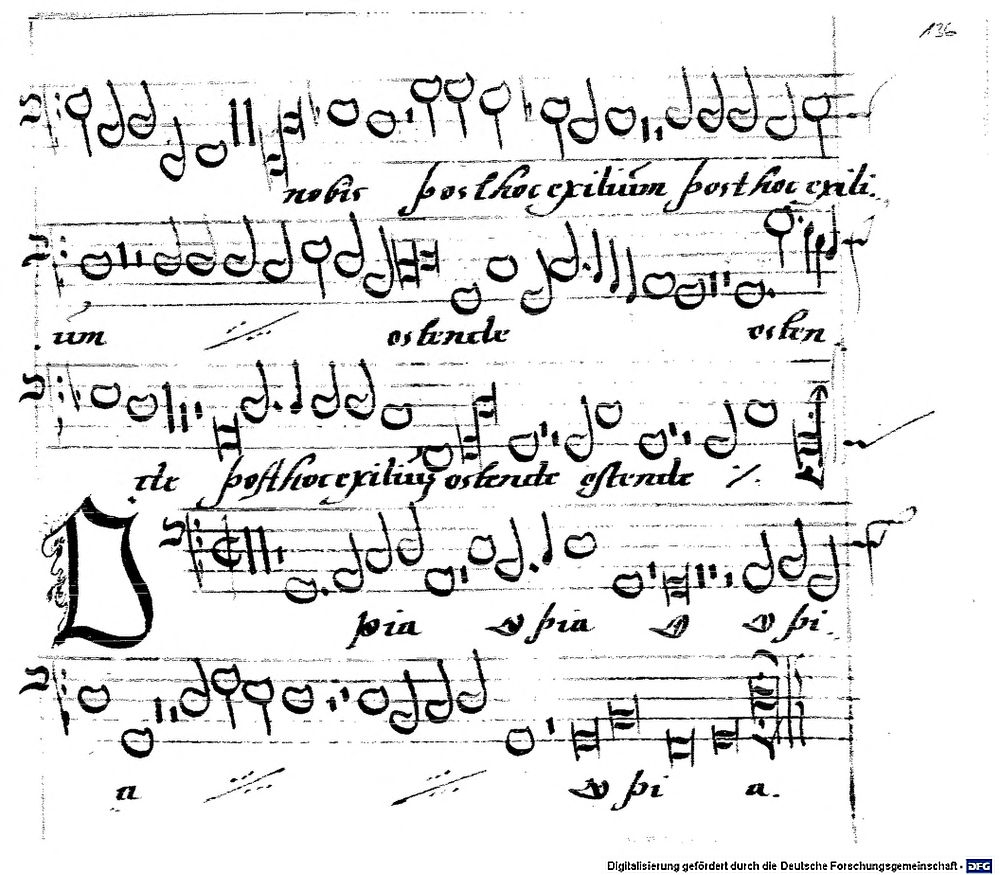 136
nobis post hoc exilium post hoc exili.
um ostende osten
de post hoc exiliũ ostende ostende ·/.
O
pia O pia O O pi.
a O pi a.
Digitalisierung gefördert durch die Deutsche Forschungsgemeinschaft - DFG